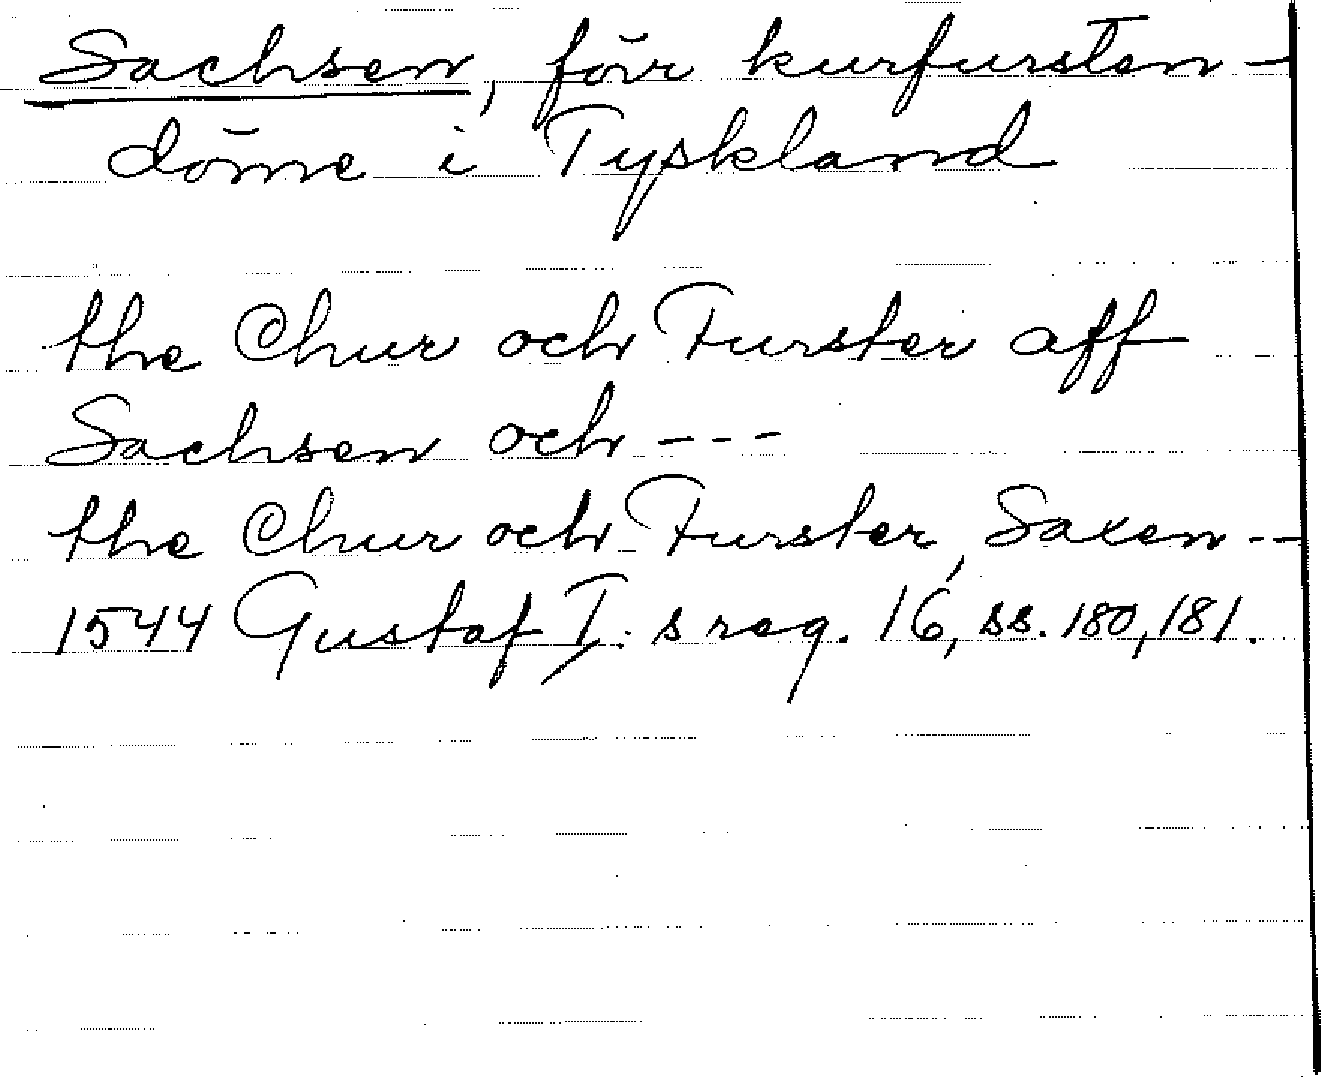 Sachsen, förr kurfursten-
döme i Tyskland
the Chur och Furster aff
Sachsen och ---
the Chur och Furster, Saxen --
1544 Gustaf I:s reg. 16, ss. 180, 181.